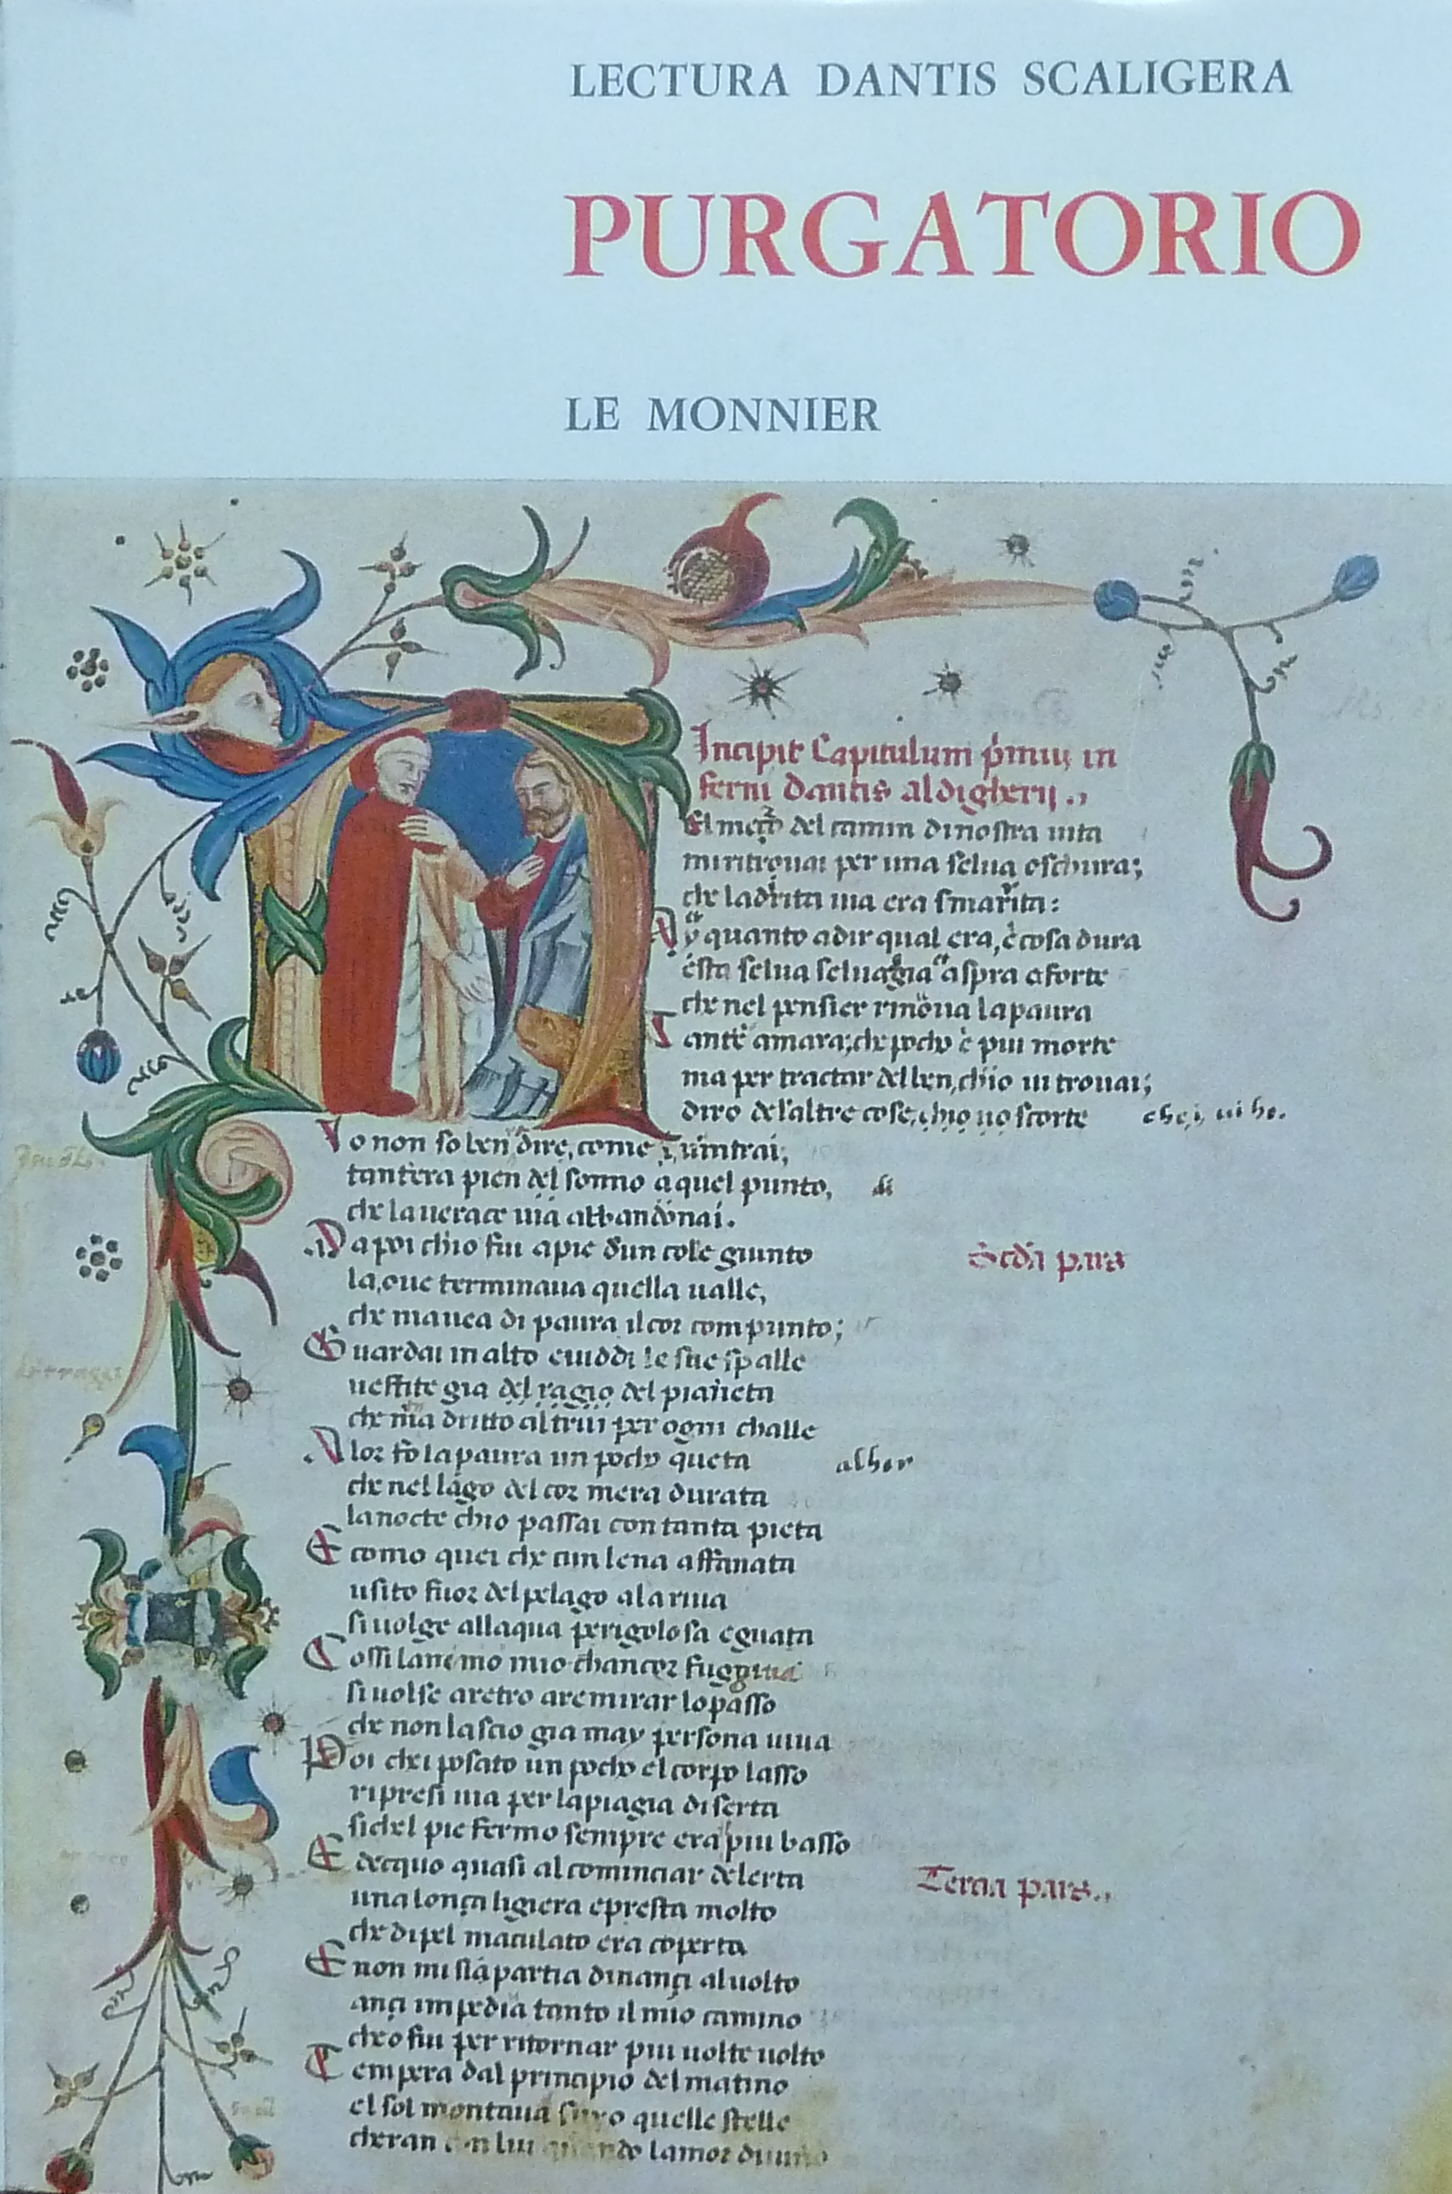 LECTURA DANTIS SCALIGERA
PURGATORIO
LE MONNIER
Incipit Capitulum p̄muȝ in
ferni dantis aldigherij .,
El meço del camin di nostra uita
mi ritrouai per una selua oschura;
che la drita uia era smarita:
Ay quanto a dir qual era, è cosa dura
esta selua seluagia aspra a forte
che nel pensier rinoua la paura
Tant'è amara; che pocho è piu morte
ma per tractar del ben, ch'io ui trouai;
diro de l'altre cose, chio uo scorte
chei, ui ho.
Io non so ben dire, come i uintrai;
tant'era pien del sonno a quel punto,
di
che la uerace uia abbandonai.
Da poi chio fui a pie dun colle giunto
Scďa pars
la, oue terminaua quella ualle,
che mauea di paura il cor compunto;
Guardai in alto e uiddi le sue spalle
uestite gia del ragio del pianeta
che mena dritto altrui per ogni challe
Alor fo la paura un pocho queta
alhor
che nel lago del cor mera durata
la nocte chio passai con tanta pieta
E como quei che cun lena affanata
usito fuor del pelago a la riua
si uolge all aqua perigolosa e guata
Cossi lanemo mio chancor fuggiua
si uolse a retro a remirar lo passo
che non lascio gia may persona uiua
Poi chei posato un pocho el corpo lasso
ripresi uia per la piagia diserta
si chel pie fermo sempre era piu basso
E decquo quasi al cominciar de lerta
Tercia pars.,
una lonça ligiera e presta molto
che di pel maculato era coperta
E non mi si a partia dinançi al uolto
ançi impedia tanto il mio camino
cheo fui per ritornar piu uolte uolto
Tempera dal principio del matino
el sol montaua suxo quelle stelle
cheran con lui quando lamor diuino